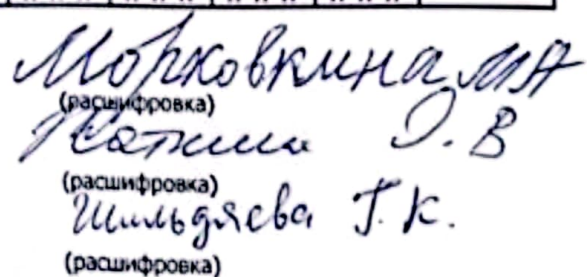 Морковкина МА
(расшифровка)
О. В
(расшифровка)
Шильдяева Г. К.
(расшифровка)